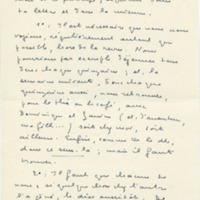 la lettre et dans la mesure.
1°, : Il est nécessaire que nous nous
voyions, régulièrement autant que
possible, hors de la revue. Nous
pourrions par exemple déjeuner tous
deux chaque quinzaine ; et, la
semaine suivante, tous chaque
quinzaine aussi, nous retrouver
pour le thé ou le café, avec
Dominique et Janine (et, d'aventure,
ma fille..) soit chez moi, soit
ailleurs. Enfin, comme tu le dis,
dans ce sens-là ; mais il faut
trouver.
2°: Il faut que chacun de
nous, si quelque chose chez l'autre
l'a gêné, le dise aussitôt. De